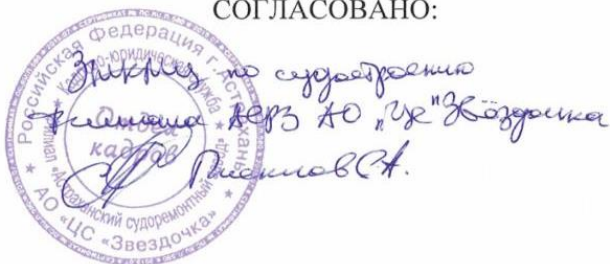 СОГЛАСОВАНО:
по судостроению
филиала АСРЗ АО „ЦС "Звёздочка
С.А.
Российская Федерация г. Астрахань
Кадрово-юридическая служба
Отдел кадров
филиал «Астраханский судоремонтный завод»
АО «ЦС «Звездочка»